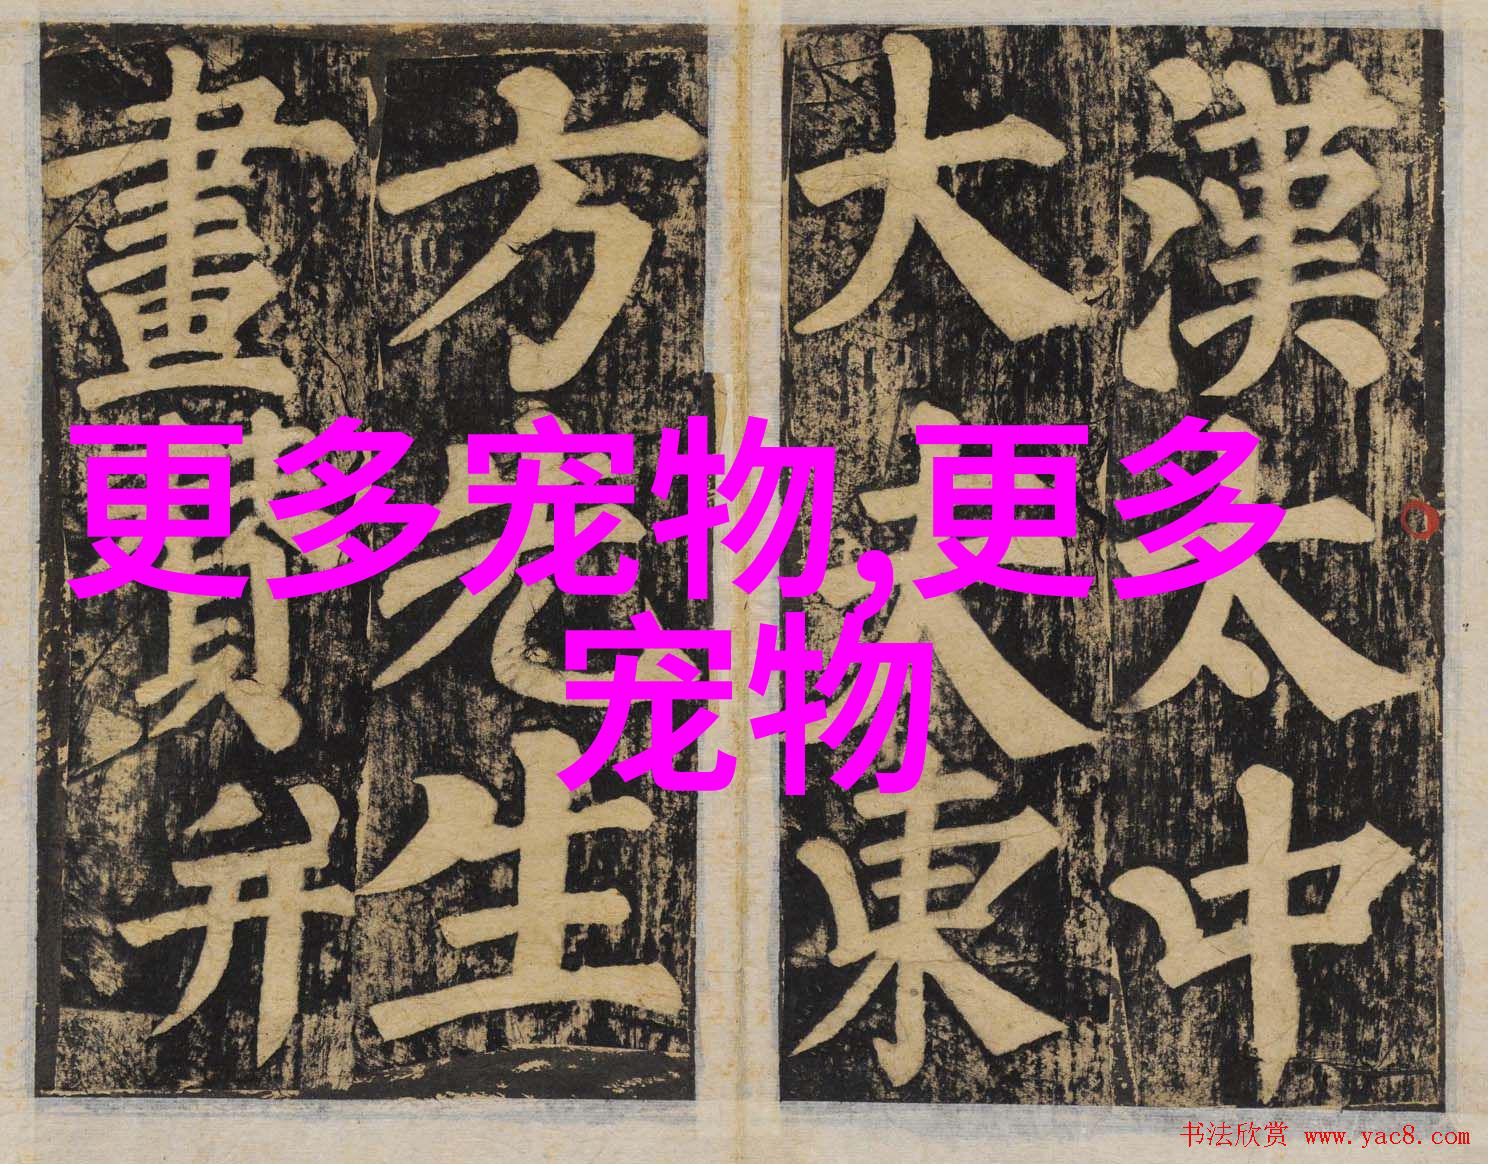 更多宠物,更多
宠物
漢太中
大夫東
方先生
畫贊并
书法欣赏 www.yac8.com